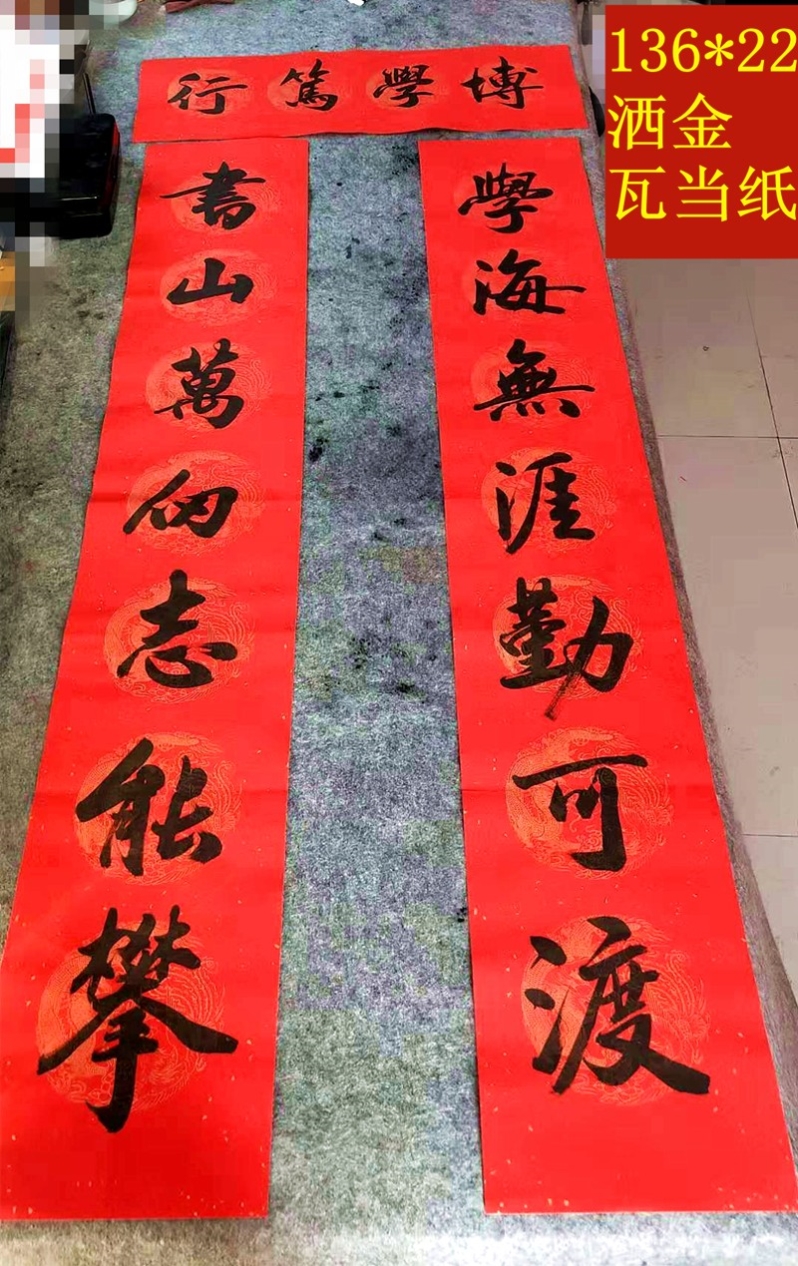 博學篤行
學海無涯勤可渡
書山萬仞志能攀
136*22
洒金
瓦当纸